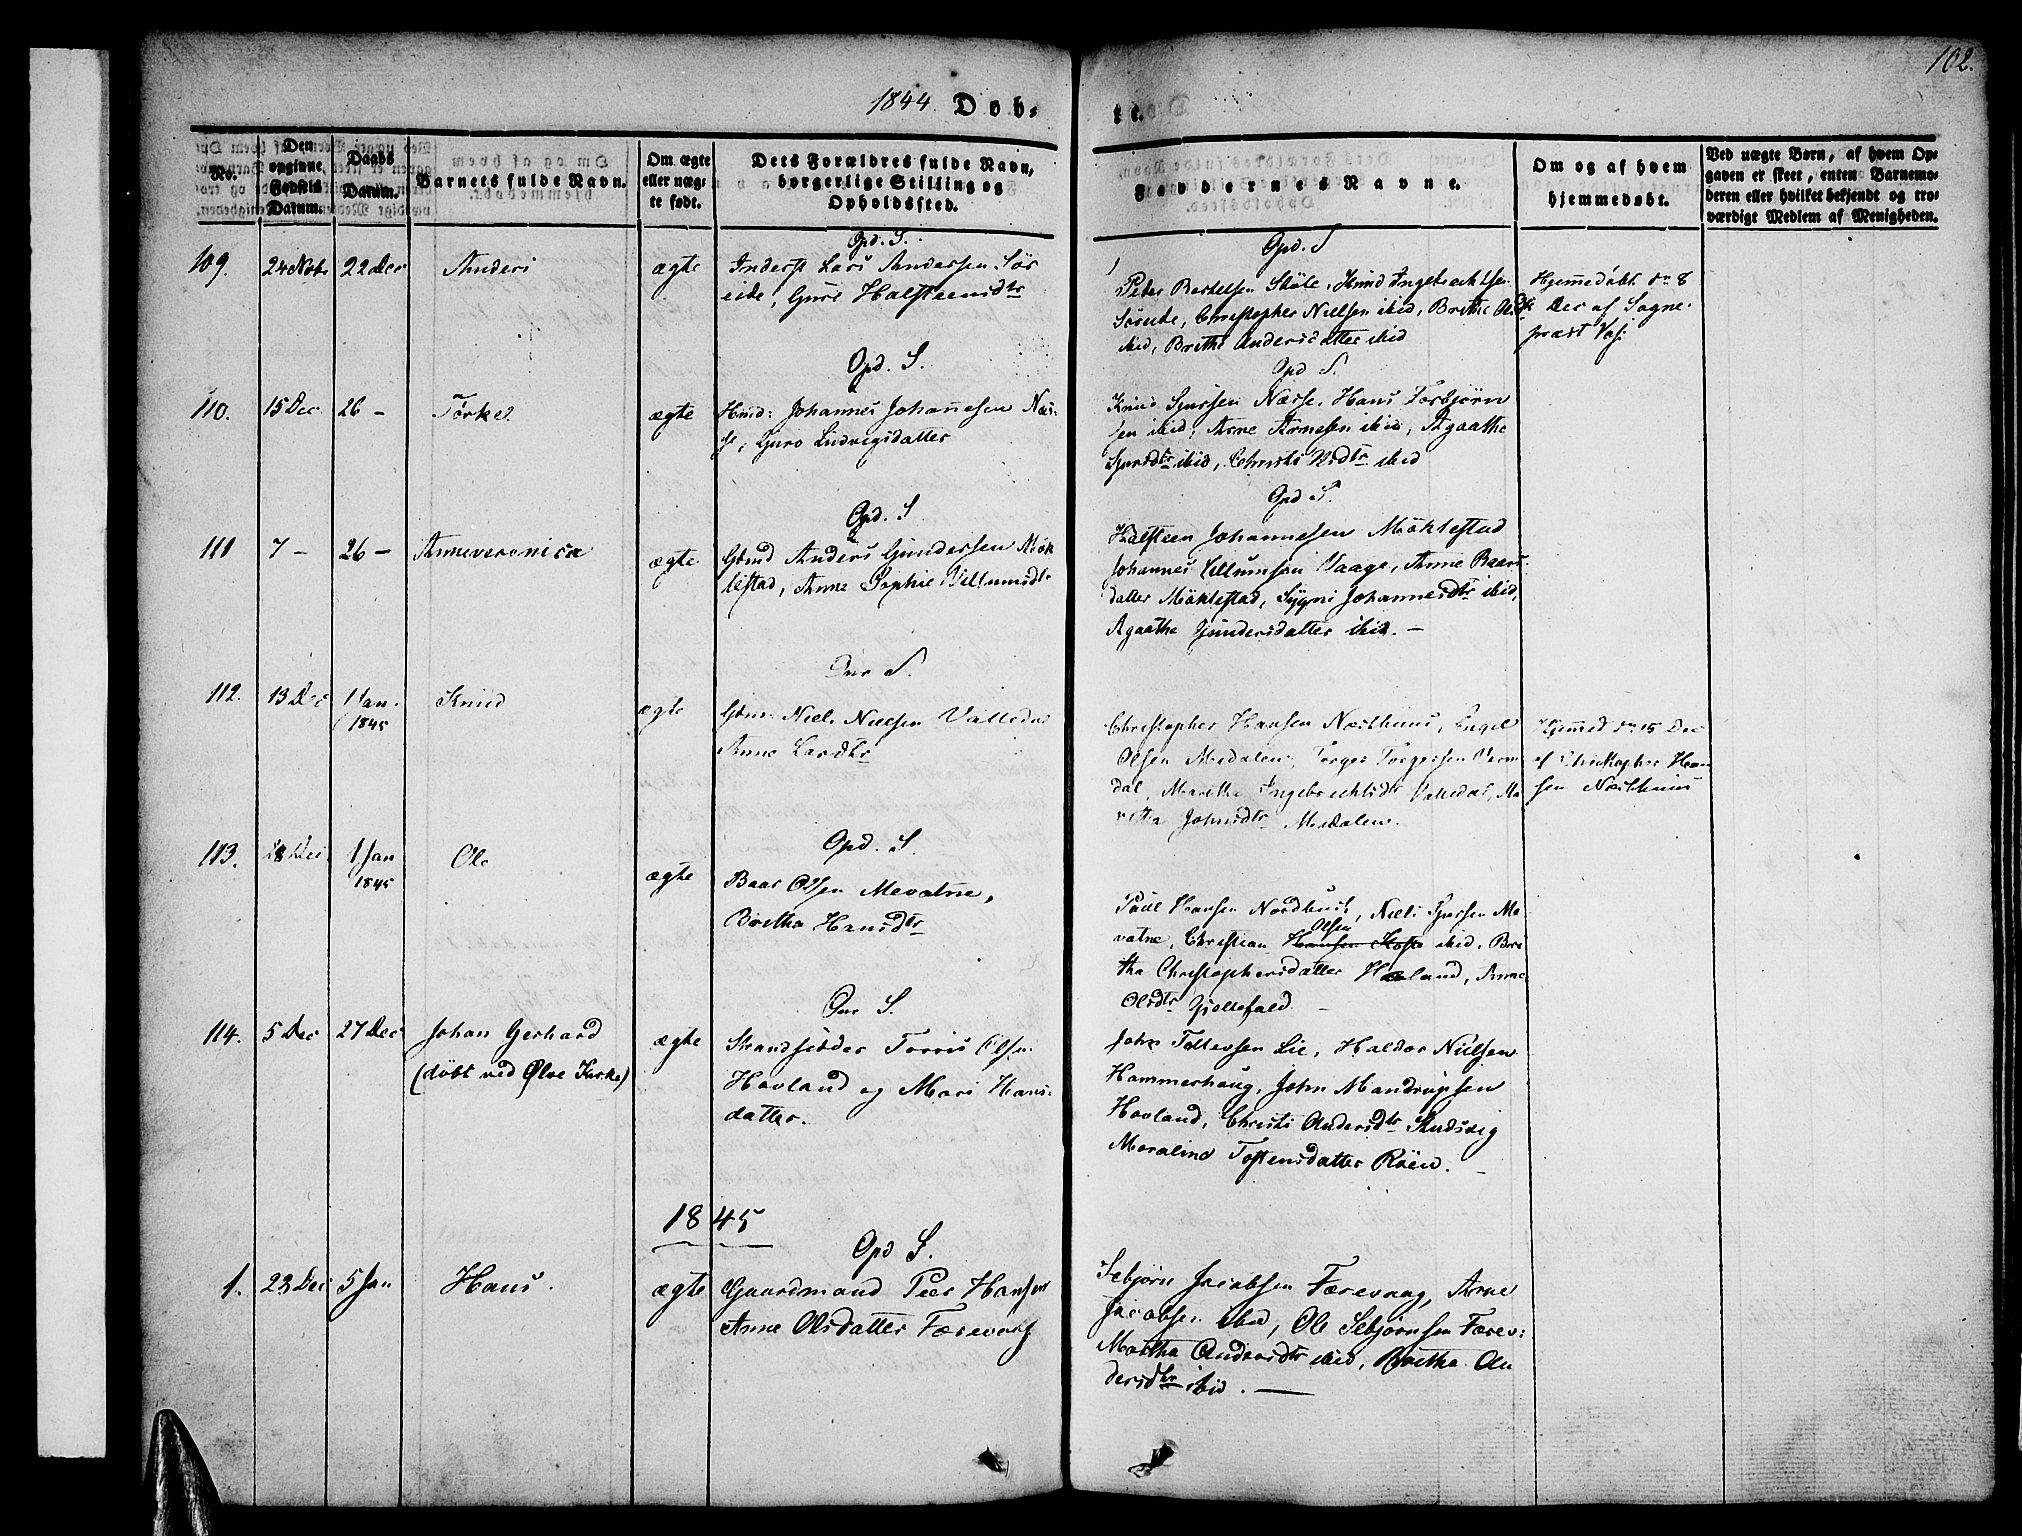 102.
1844. Døb= te.
No.
Den opgivne Fødsels Datum.
Daabs Datum.
Barnets fulde Navn.
Om ægte eller uæg- te født.
Dets Forældres fulde Navn, borgerlige Stilling og Opholdssted.
Faddernes Navne.
Om og af hvem hjemmedøbt.
Ved uægte Børn, af hvem Op- gaven er skeet, enten Barnemo- deren eller hvilket bekjendt og tro- værdigt Medlem af Menigheden.
Opd. S.
109. 24 Nov 22 Dec Anders ægte Inderst Lars Andersen Sör
eide, Guro Halsteensdtr
Opd. S
Peder Bertelsen Knud Ingebrechtsen
Söreide, Christopher Nielsen ibid, Brithe
ibid, Brithe Andersdatter ibid
Hjemmedöbt dn 8
Dec af Sogne-
præst
Opd. S.
110. 15 Dec 26 - Törkel ægte Huusmd: Johannes Johannesen Næs
se, Guro Ludvigsdatter
Opd S.
Knud Sjursen Næsse, Hans Torbjörn
sen ibid, Arne Arnesen ibid, Agaathe
Sjursdtr ibid, Christi Nsdtr ibid
Opd. S
111 7 - 26 - Anneveronica ægte Gbmd Anders Gundersen Mök
lestad, Anne Sophie Villumsdtr
Opd S.
Halsteen Johannesen Möklestad
Johannes Villumsen Vaage, Anne Baars
datter Möklestad, Sygni Johannesdtr ibid,
Agaathe Gundersdatter ibid. -
S.
112. 13 Dec 1 Jan. 1845 Knud ægte Gbm. Niels Nielsen Valledal
Anne Larsdtr
Christopher Hansen Næsthuus, Engel
Olsen Medalen, Torger Torgersen
dal, Maritha Ingebrechtsdtr Valledal, Ma
ritha Johnsdtr Medalen.
Hjemmed dn 15 Dec
af Christopher Han
sen Næsthuus
Opd. S.
113. 18 Dec. 1 Jan 1845 Ole ægte Baar Olsen Mevatne,
Britha Hansdtr
Paul Hansen Nordhuus, Niels Sjursen Me
vatne, Christian Olsen ibid, Bri
tha Christophersdatter Hæland, Anne
Olsdtr Gjellefald.
S.
114. 5 Dec 27 Dec Johan Gerhard ægte Strandsidder Torris Olsen
(döbt ved Ølve Kirke)
Hovland og Mari Hans-
datter.
John Tollevsen Lie, Haldor Nielsen
Hammerhaug, John Mandrupsen
Hovland, Christi Andersdtr
Moraline Tostensdatter Röen.
1845
Opd S.
1. 23 Dec 5 Jan Hans. ægte Gaardmand Peer Hansen
Anne Olsdatter Færevaag
Sebjörn Jacobsen Færevaag, Arne
Jacobsen ibid, Ole Sebjörnsen Færev:
Martha Andersdtr ibid, Britha An
dersdtr ibid. -